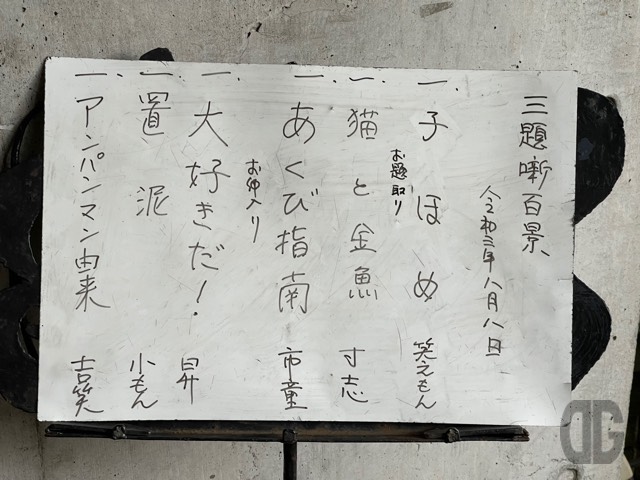 三題噺百景
令和三年八月八日
一、子ほめ 笑えもん
お題取り
一、猫と金魚 寸志
一、あくび指南 市童
お仲入り
一、大好きだ! 昇
一、置泥 小もん
一、アンパンマン由来 吉笑
DG